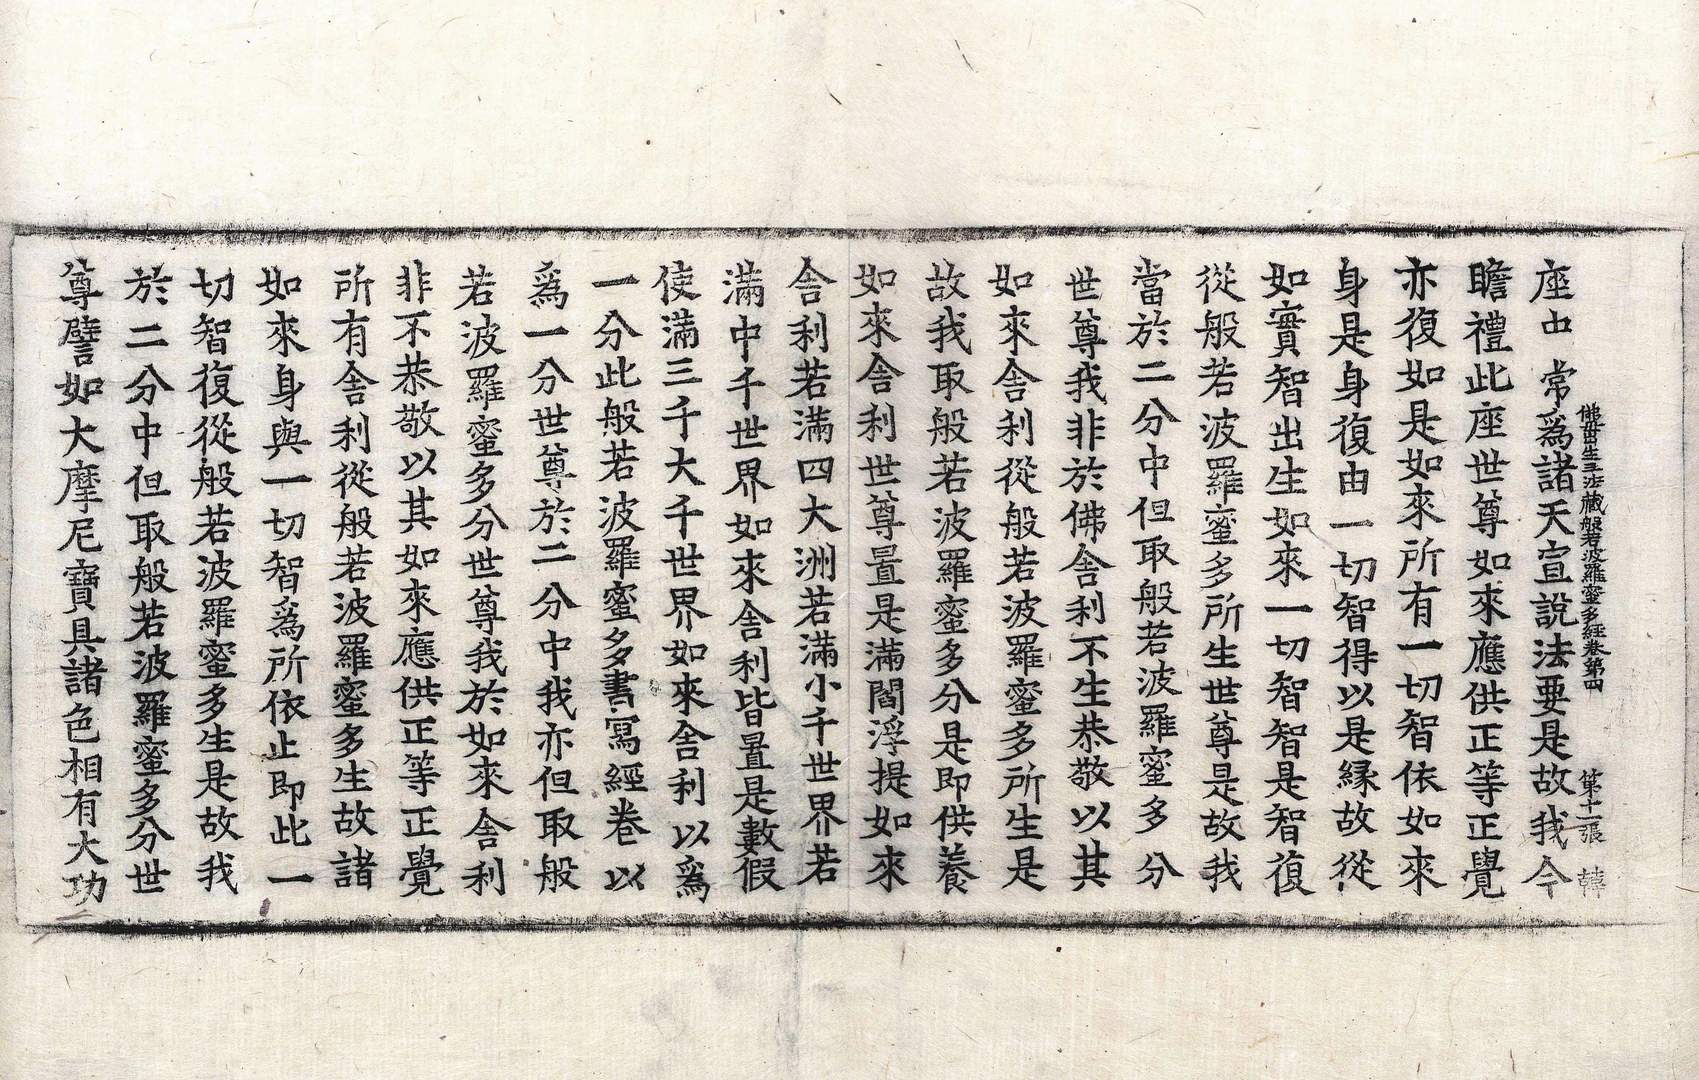 佛母出生三法藏般若波羅蜜多經卷第四 第十二張 韓
座中常爲諸天宣說法要是故我今
瞻禮此座世尊如來應供正等正覺
亦復如是如來所有一切智依如來
身是身復由一切智得以是緣故從
如實智出生如來一切智智是智復
從般若波羅蜜多所生世尊是故我
當於二分中但取般若波羅蜜多分
世尊我非於佛舍利不生恭敬以其
如來舍利從般若波羅蜜多所生是
故我取般若波羅蜜多分是即供養
如來舍利世尊置是滿閻浮提如來
舍利若滿四大洲若滿小千世界若
滿中千世界如來舍利皆置是數假
使滿三千大千世界如來舍利以爲
一分此般若波羅蜜多書寫經卷以
爲一分世尊於二分中我亦但取般
若波羅蜜多分世尊我於如來舍利
非不恭敬以其如來應供正等正覺
所有舍利從般若波羅蜜多生故諸
如來身與一切智爲所依止即此一
切智復從般若波羅蜜多生是故我
於二分中但取般若波羅蜜多分世
尊譬如大摩尼寶具諸色相有大功